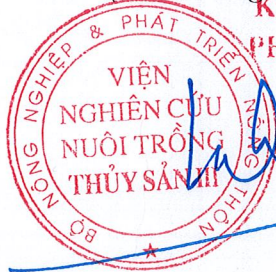 BỘ NÔNG NGHIỆP & PHÁT TRIỂN NÔNG THÔN
VIỆN
NGHIÊN CỨU
NUÔI TRỒNG
THỦY SẢN III